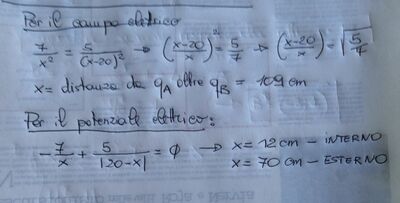 Per il campo elettrico
7/x² = 5/(x-20)² → ((x-20)/x)² = 5/7 → ((x-20)/x) = √(5/7)
x = distanza da qA oltre qB = 109 cm
Per il potenziale elettrico:
-7/x + 5/|20-x| = ϕ → x = 12 cm - INTERNO
x = 70 cm - ESTERNO